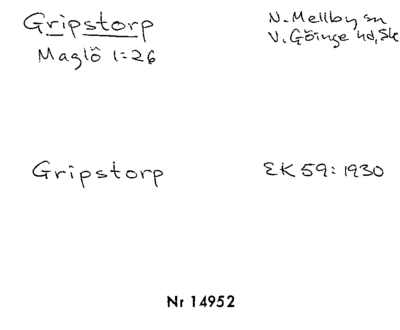 Gripstorp
N. Mellby sn
Maglö 1:26
V. Göinge hd, Sk
Gripstorp
EK 59: 1930
Nr 14952